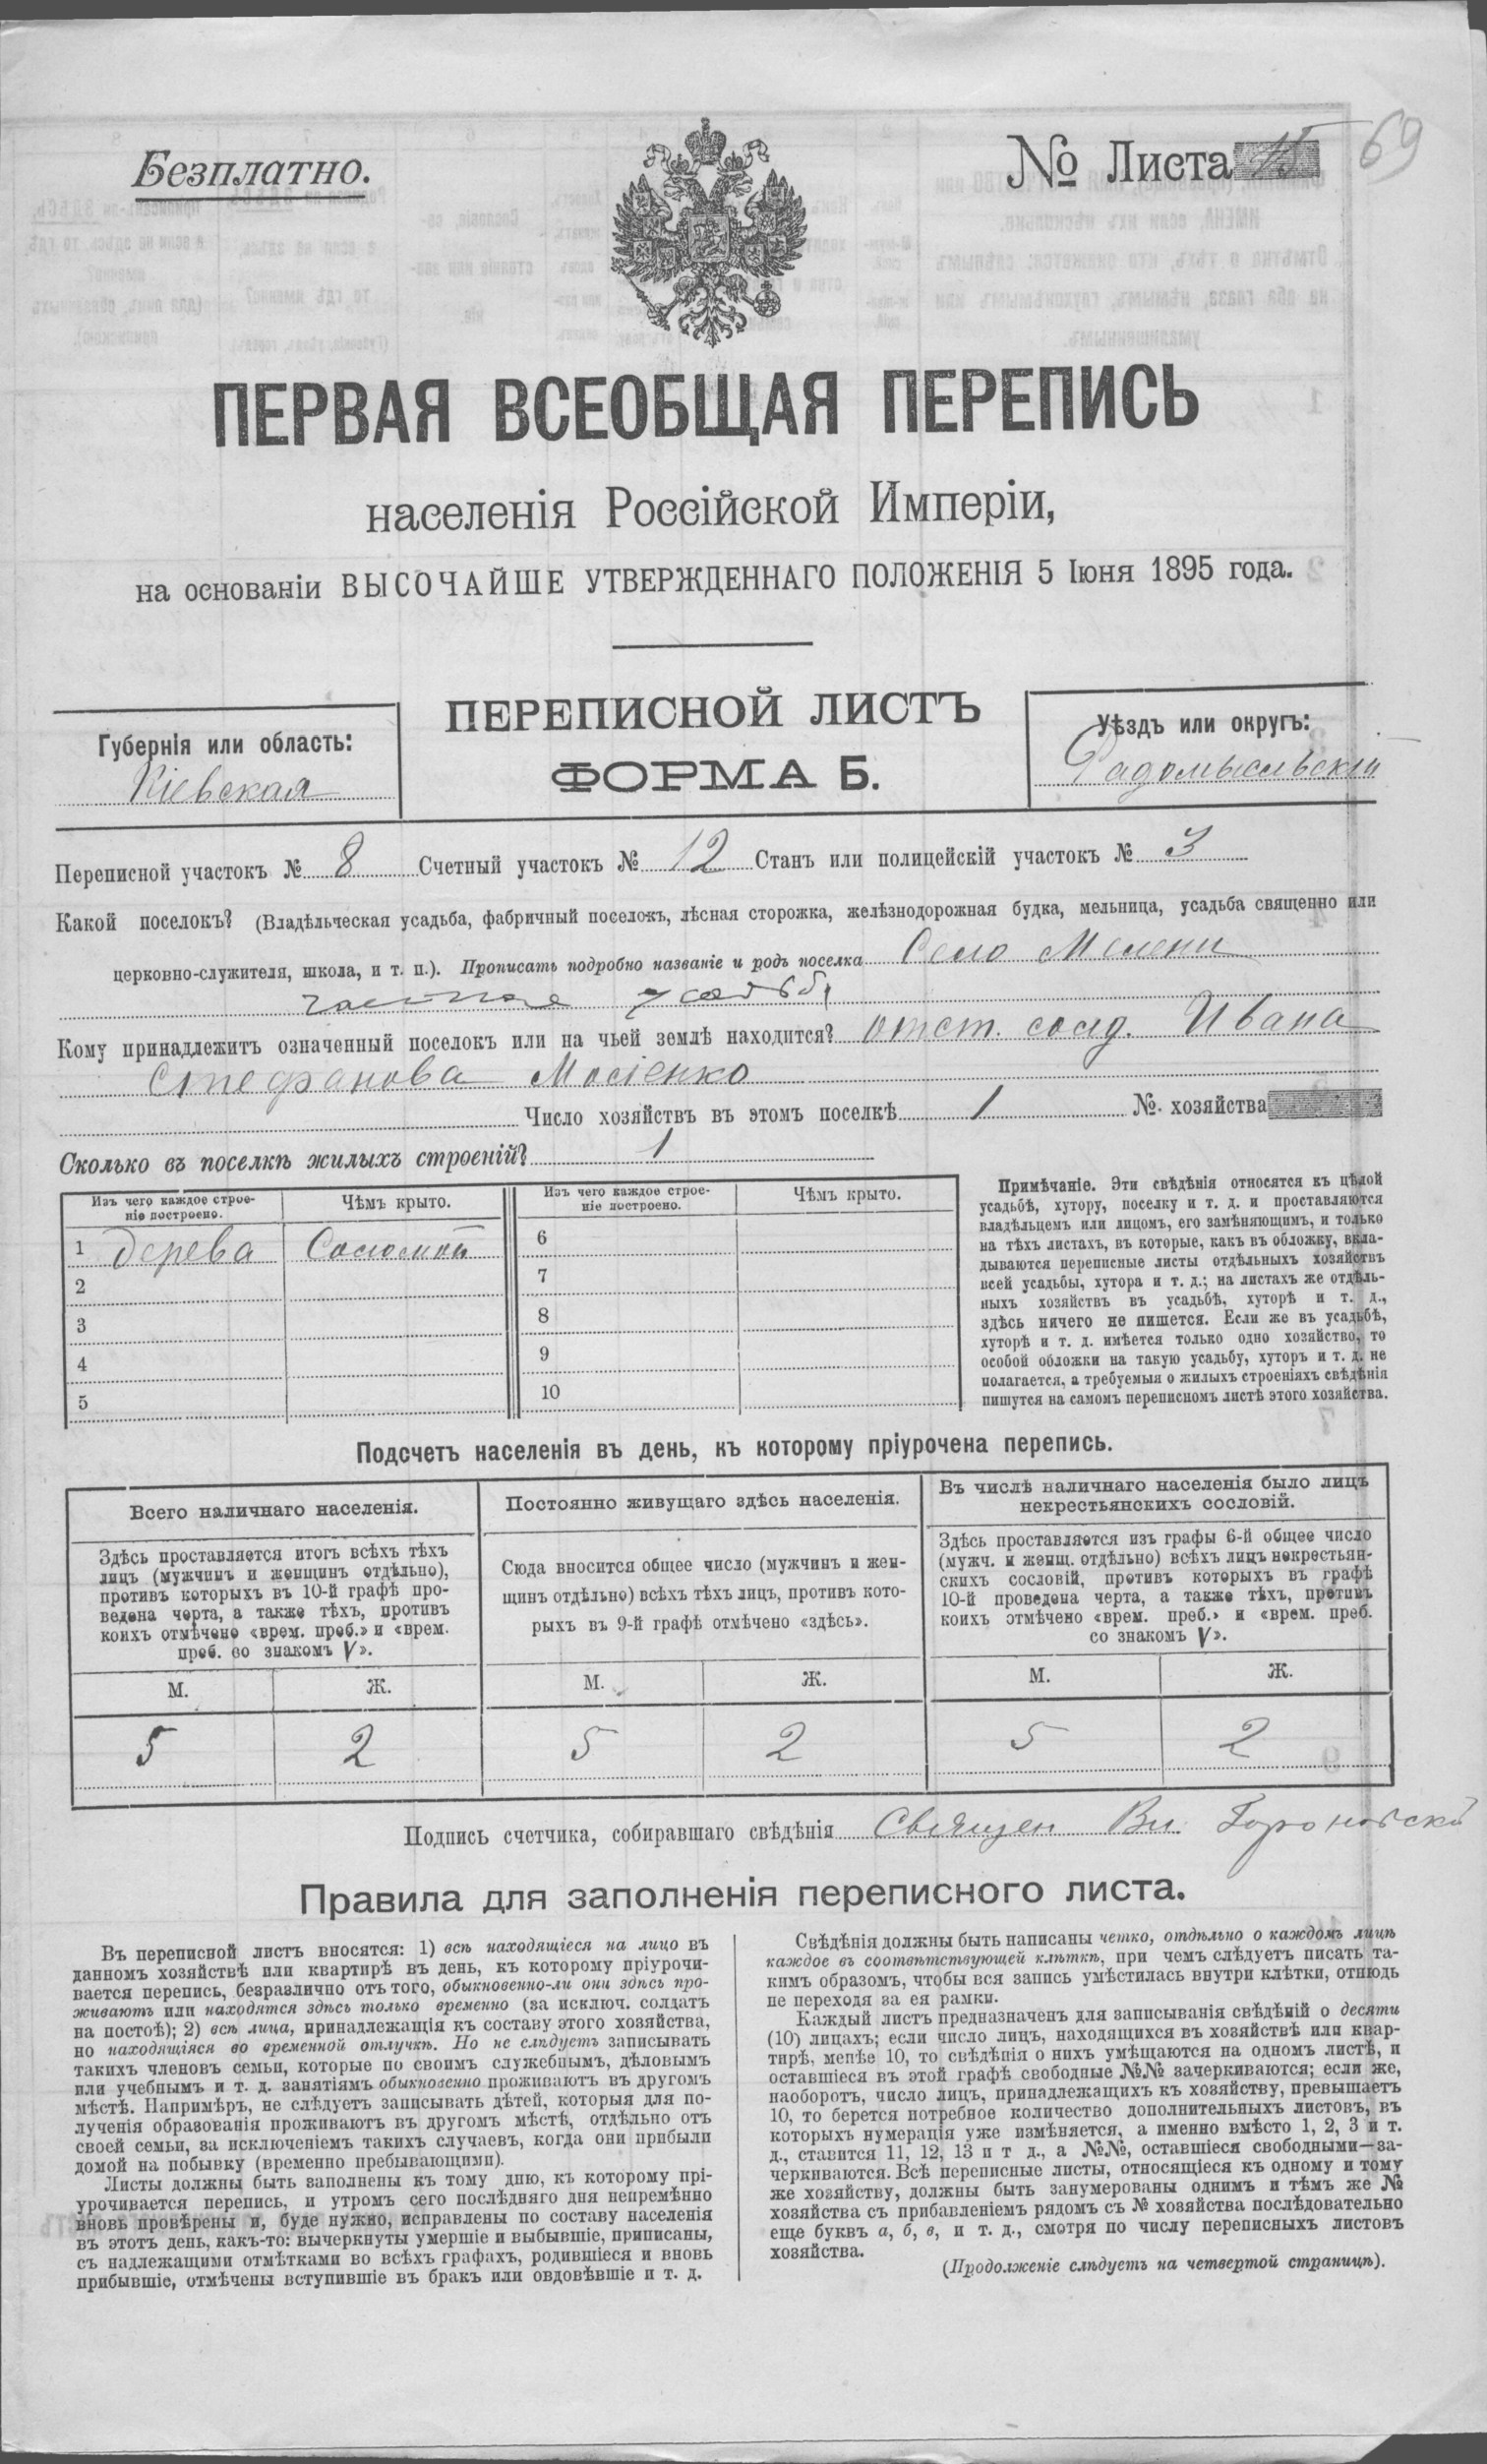 Безплатно.
№ Листа 15
69
ПЕРВАЯ ВСЕОБЩАЯ ПЕРЕПИСЬ
населенія Россійской Имперіи,
на основаніи ВЫСОЧАЙШЕ УТВЕРЖДЕННАГО ПОЛОЖЕНІЯ 5 Іюня 1895 года.
ПЕРЕПИСНОЙ ЛИСТЪ
ФОРМА Б.
Губернія или область:
Кіевская
Уѣздъ или округъ:
Радомысльскій
Переписной участокъ № 8 Счетный участокъ № 12 Станъ или полицейскій участокъ № 3
Какой поселокъ? (Владѣльческая усадьба, фабричный поселокъ, лѣсная сторожка, желѣзнодорожная будка, мельница, усадьба священно или
церковно-служителя, школа, и т. п.). Прописать подробно названіе и родъ поселка Село Мелени
частная усадьба
Кому принадлежитъ означенный поселокъ или на чьей землѣ находится? отст. солд. Ивана
Стефанова Мосіенко
Число хозяйствъ въ этомъ поселкѣ 1 №. хозяйства
Сколько въ поселкѣ жилыхъ строеній? 1
Изъ чего каждое строе-
ніе построено.
Чѣмъ крыто.
Изъ чего каждое строе-
ніе построено.
Чѣмъ крыто.
1 Дерева Соломой 6
2 7
3 8
4 9
5 10
Примѣчаніе. Эти свѣдѣнія относятся къ цѣлой
усадьбѣ, хутору, поселку и т. д. и проставляются
владѣльцемъ или лицомъ, его замѣняющимъ, и только
на тѣхъ листахъ, въ которые, какъ въ обложку, вкла-
дываются переписные листы отдѣльныхъ хозяйствъ
всей усадьбы, хутора и т. д.; на листахъ же отдѣль-
ныхъ хозяйствъ въ усадьбѣ, хуторѣ и т. д.,
здѣсь ничего не пишется. Если же въ усадьбѣ,
хуторѣ и т. д. имѣется только одно хозяйство, то
особой обложки на такую усадьбу, хуторъ и т. д. не
полагается, а требуемыя о жилыхъ строеніяхъ свѣдѣнія
пишутся на самомъ переписномъ листѣ этого хозяйства.
Подсчетъ населенія въ день, къ которому пріурочена перепись.
Всего наличнаго населенія.
Здѣсь проставляется итогъ всѣхъ тѣхъ
лицъ (мужчинъ и женщинъ отдѣльно),
противъ которыхъ въ 10-й графѣ про-
ведена черта, а также тѣхъ, противъ
коихъ отмѣчено «врем. преб.» и «врем.
преб. со знакомъ V».
М. Ж.
5 2
Постоянно живущаго здѣсь населенія.
Сюда вносится общее число (мужчинъ и жен-
щинъ отдѣльно) всѣхъ тѣхъ лицъ, противъ кото-
рыхъ въ 9-й графѣ отмѣчено «здѣсь».
М. Ж.
5 2
Въ числѣ наличнаго населенія было лицъ
некрестьянскихъ сословій.
Здѣсь проставляется изъ графы 6-й общее число
(мужч. и женщ. отдѣльно) всѣхъ лицъ некрестьян-
скихъ сословій, противъ которыхъ въ графѣ
10-й проведена черта, а также тѣхъ, противъ
коихъ отмѣчено «врем. преб.» и «врем. преб.
со знакомъ V».
М. Ж.
5 2
Подпись счетчика, собиравшаго свѣдѣнія Священ Вл.
Правила для заполненія переписного листа.
Въ переписной листъ вносятся: 1) всѣ находящіеся на лицо въ
данномъ хозяйствѣ или квартирѣ въ день, къ которому пріурочи-
вается перепись, безразлично отъ того, обыкновенно-ли они здѣсь про-
живаютъ или находятся здѣсь только временно (за исключ. солдатъ
на постоѣ); 2) всѣ лица, принадлежащія къ составу этого хозяйства,
но находящіяся во временной отлучкѣ. Но не слѣдуетъ записывать
такихъ членовъ семьи, которые по своимъ служебнымъ, дѣловымъ
или учебнымъ и т. д. занятіямъ обыкновенно проживаютъ въ другомъ
мѣстѣ. Напримѣръ, не слѣдуетъ записывать дѣтей, которыя для по-
лученія образованія проживаютъ въ другомъ мѣстѣ, отдѣльно отъ
своей семьи, за исключеніемъ такихъ случаевъ, когда они прибыли
домой на побывку (временно пребывающими).
Листы должны быть заполнены къ тому дню, къ которому прі-
урочивается перепись, и утромъ сего послѣдняго дня непремѣнно
вновь провѣрены и, буде нужно, исправлены по составу населенія
въ этотъ день, какъ-то: вычеркнуты умершіе и выбывшіе, приписаны,
съ надлежащими отмѣтками во всѣхъ графахъ, родившіеся и вновь
прибывшіе, отмѣчены вступившіе въ бракъ или овдовѣвшіе и т. д.
Свѣдѣнія должны быть написаны четко, отдѣльно о каждомъ лицѣ
каждое въ соотвѣтствующей клѣткѣ, при чемъ слѣдуетъ писать та-
кимъ образомъ, чтобы вся запись умѣстилась внутри клѣтки, отнюдь
не переходя за ея рамки.
Каждый листъ предназначенъ для записыванія свѣдѣній о десяти
(10) лицахъ; если число лицъ, находящихся въ хозяйствѣ или квар-
тирѣ, менѣе 10, то свѣдѣнія о нихъ умѣщаются на одномъ листѣ, и
оставшіеся въ этой графѣ свободные №№ зачеркиваются; если же,
наоборотъ, число лицъ, принадлежащихъ къ хозяйству, превышаетъ
10, то берется потребное количество дополнительныхъ листовъ, въ
которыхъ нумерація уже измѣняется, а именно вмѣсто 1, 2, 3 и т.
д., ставится 11, 12, 13 и т д., а №№, оставшіеся свободными—за-
черкиваются. Всѣ переписные листы, относящіеся къ одному и тому
же хозяйству, должны быть занумерованы однимъ и тѣмъ же №
хозяйства съ прибавленіемъ рядомъ съ № хозяйства послѣдовательно
еще буквъ а, б, в, и т. д., смотря по числу переписныхъ листовъ
хозяйства.
(Продолженіе слѣдуетъ на четвертой страницѣ).